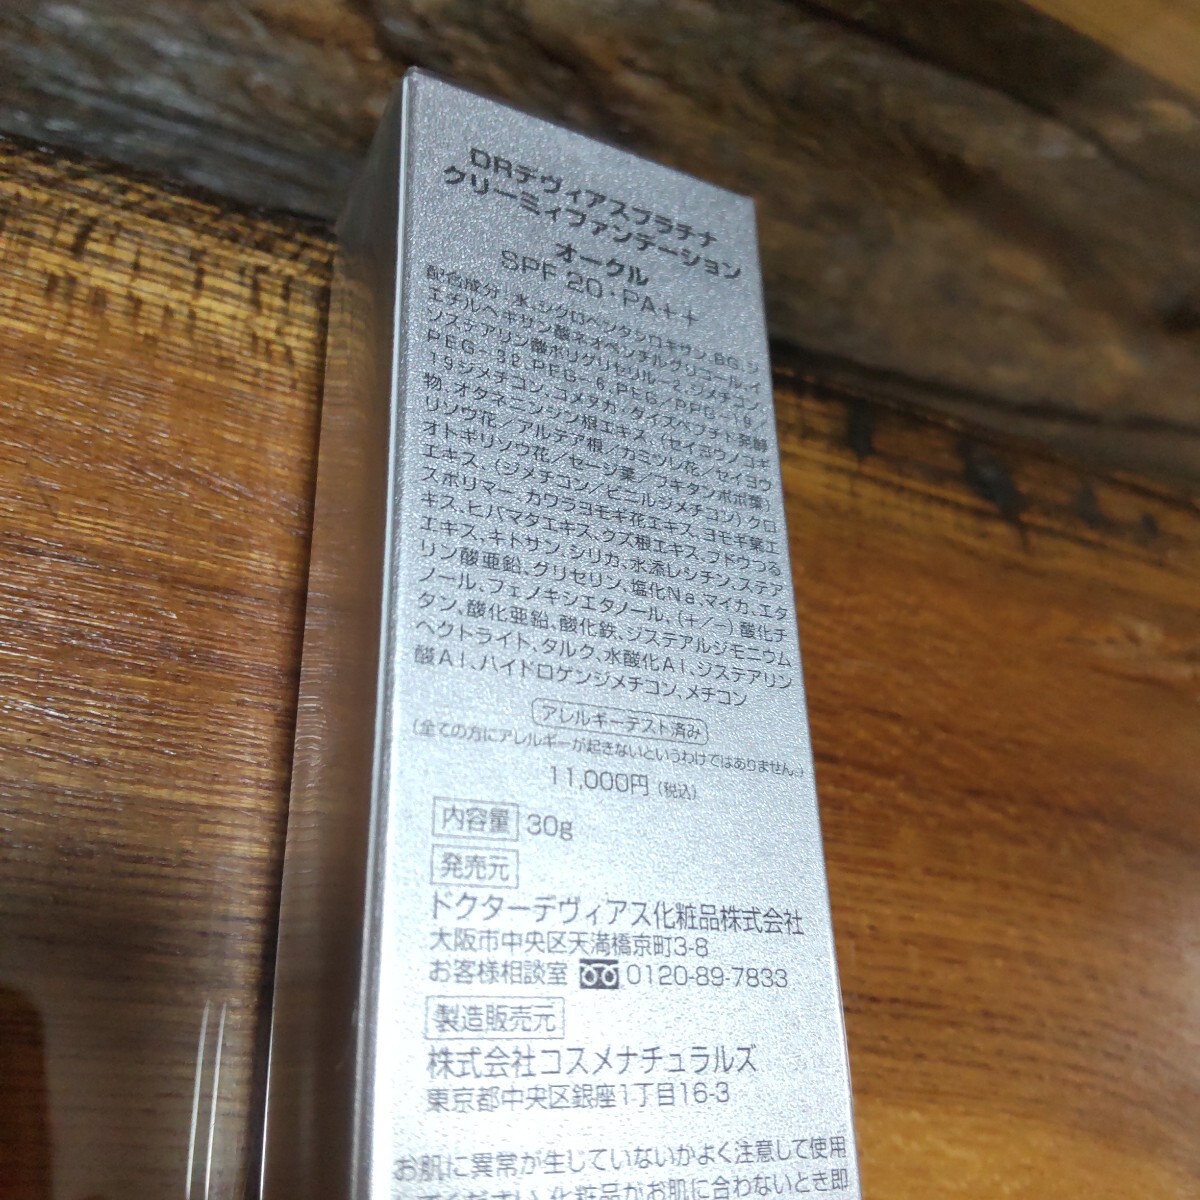 DRデヴィアスプラチナ
クリーミィファンデーション
オークル
SPF 20・PA++
配合成分:水、シクロペンタシロキサン、BG、ジ
エチルヘキサン酸ネオペンチルグリコール、イ
ソステアリン酸ポリグリセリル-2、ジメチコン、
PEG-32、PEG-6、PEG/PPG-19/
19ジメチコン、コメヌカ/ダイズペプチド発酵
物、オタネニンジン根エキス、(セイヨウノコギ
リソウ花/アルテア根/カミツレ花/セイヨウ
オトギリソウ花/セージ葉/フキタンポポ葉)
エキス、(ジメチコン/ビニルジメチコン)クロ
スポリマー、カワラヨモギ花エキス、ヨモギ葉エ
キス、ヒバマタエキス、クズ根エキス、ブドウつる
エキス、キトサン、シリカ、水添レシチン、ステア
リン酸亜鉛、グリセリン、塩化Na、マイカ、エタ
ノール、フェノキシエタノール、(+/-)酸化チ
タン、酸化亜鉛、酸化鉄、ジステアルジモニウム
ヘクトライト、タルク、水酸化Al、ジステアリン
酸Al、ハイドロゲンジメチコン、メチコン
アレルギーテスト済み
(全ての方にアレルギーが起きないというわけではありません。)
11,000円(税込)
内容量 30g
発売元
ドクターデヴィアス化粧品株式会社
大阪市中央区天満橋京町3-8
お客様相談室 0120-89-7833
製造販売元
株式会社コスメナチュラルズ
東京都中央区銀座1丁目16-3
お肌に異常が生じていないかよく注意して使用
してください。化粧品がお肌に合わないとき即